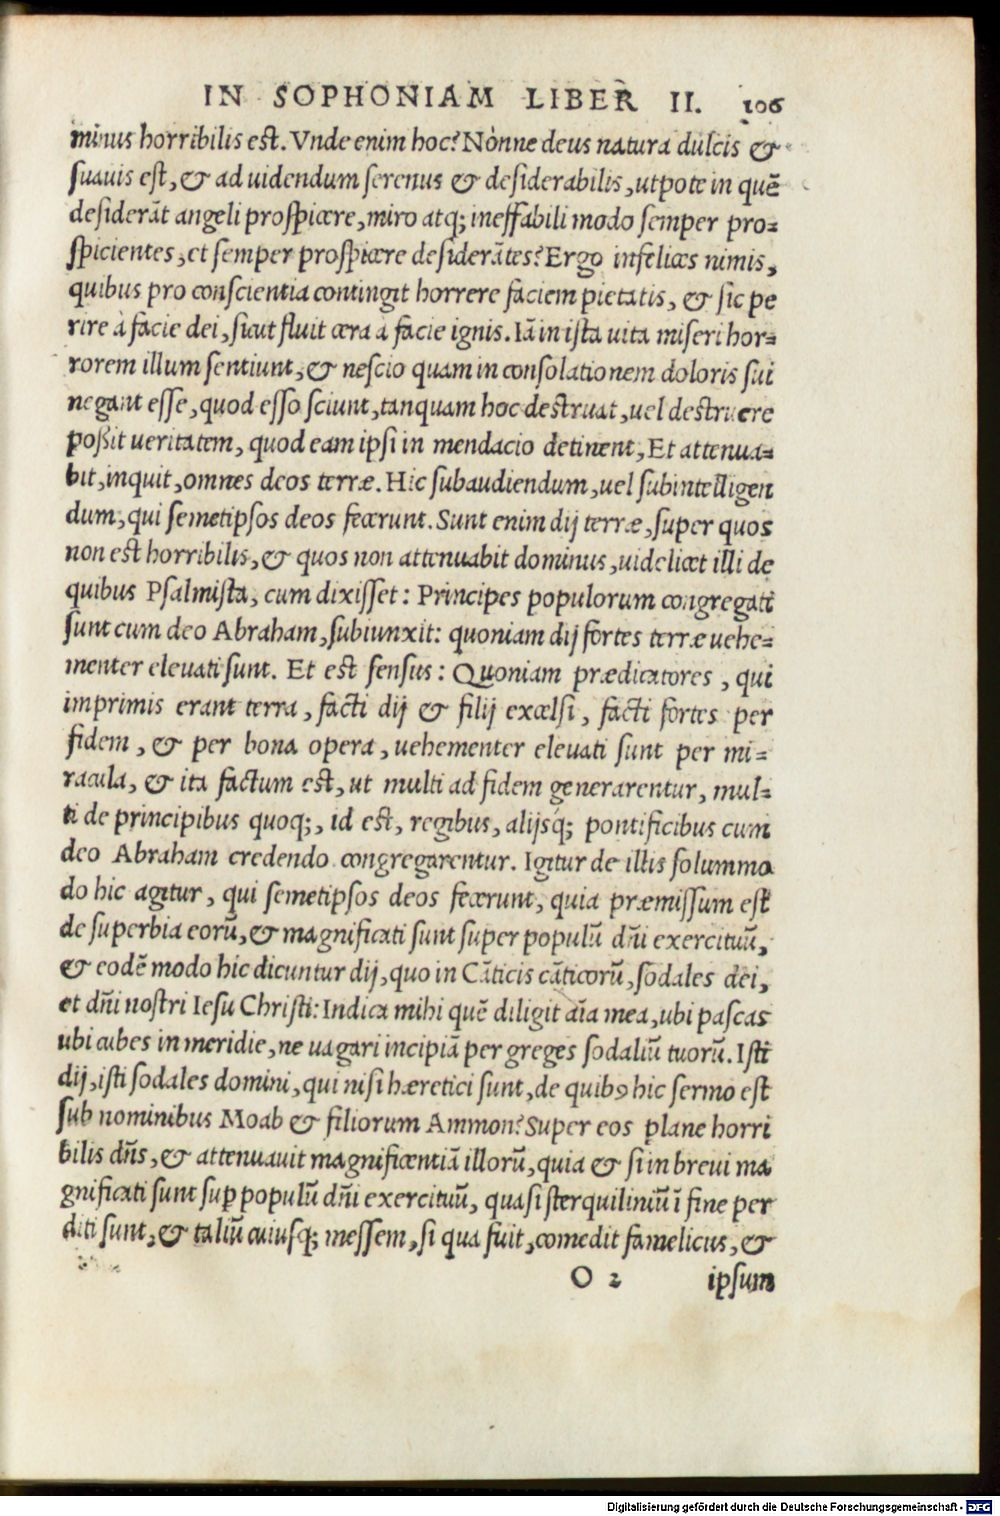 IN SOPHONIAM LIBER II. 106
minus horribilis est. Vnde enim hoc? Nónne deus natura dulcis &
suauis est, & ad uidendum serenus & desiderabilis, utpote in quē
desiderāt angeli prospicere, miro atq; ineffabili modo semper pro=
spicientes, et semper prospicere desiderātes? Ergo infelices nimis,
quibus pro conscientia contingit horrere faciem pietatis, & sic pe
rire à facie dei, sicut fluit cera a facie ignis. Iā in ista uita miseri hor=
rorem illum sentiunt, & nescio quam in consolationem doloris sui
negant esse, quod esso sciunt, tanquam hoc destruat, uel destruere
possit ueritatem, quod eam ipsi in mendacio detinent, Et attenua=
bit, inquit, omnes deos terræ. Hic subaudiendum, uel subintelligen
dum, qui semetipsos deos fecerunt. Sunt enim dij terræ, super quos
non est horribilis, & quos non attenuabit dominus, uidelicet illi de
quibus Psalmista, cum dixisset: Principes populorum congregati
sunt cum deo Abraham, subiunxit: quoniam dij fortes terræ uehe=
menter eleuati sunt. Et est sensus: Quoniam prædicatores, qui
imprimis erant terra, facti dij & filij excelsi, facti fortes per
fidem, & per bona opera, uehementer eleuati sunt per mi=
racula, & ita factum est, ut multi ad fidem generarentur, mul=
ti de principibus quoq;, id est, regibus, alijsq; pontificibus cum
deo Abraham credendo congregarentur. Igitur de illis solummo
do hic agitur, qui semetipsos deos fecerunt, quia præmissum est
de superbia eorū, & magnificati sunt super populū dñi exercituū,
& eodē modo hic dicuntur dij, quo in Cāticis cāticorū, sodales dei,
et dñi nostri Iesu Christi: Indica mihi quē diligit aīa mea, ubi pascas
ubi cubes in meridie, ne uagari incipiā per greges sodaliū tuorū. Isti
dij, isti sodales domini, qui nisi hæretici sunt, de quibꝰ hic sermo est
sub nominibus Moab & filiorum Ammon? Super eos plane horri
bilis dñs, & attenuauit magnificentiā illorū, quia & si in breui ma
gnificati sunt suꝑ populū dñi exercituū, quasi sterquiliniū ī fine per
diti sunt, & taliū cuiusq; messem, si qua fuit, comedit famelicus, &
O 2 ipsum
Digitalisierung gefördert durch die Deutsche Forschungsgemeinschaft - DFG